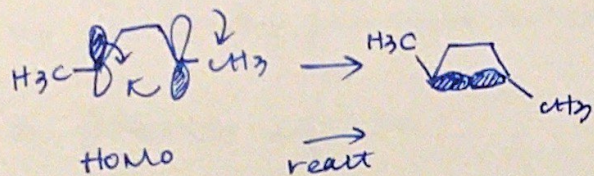 H3C
H3C CH3
CH3
HOMO react